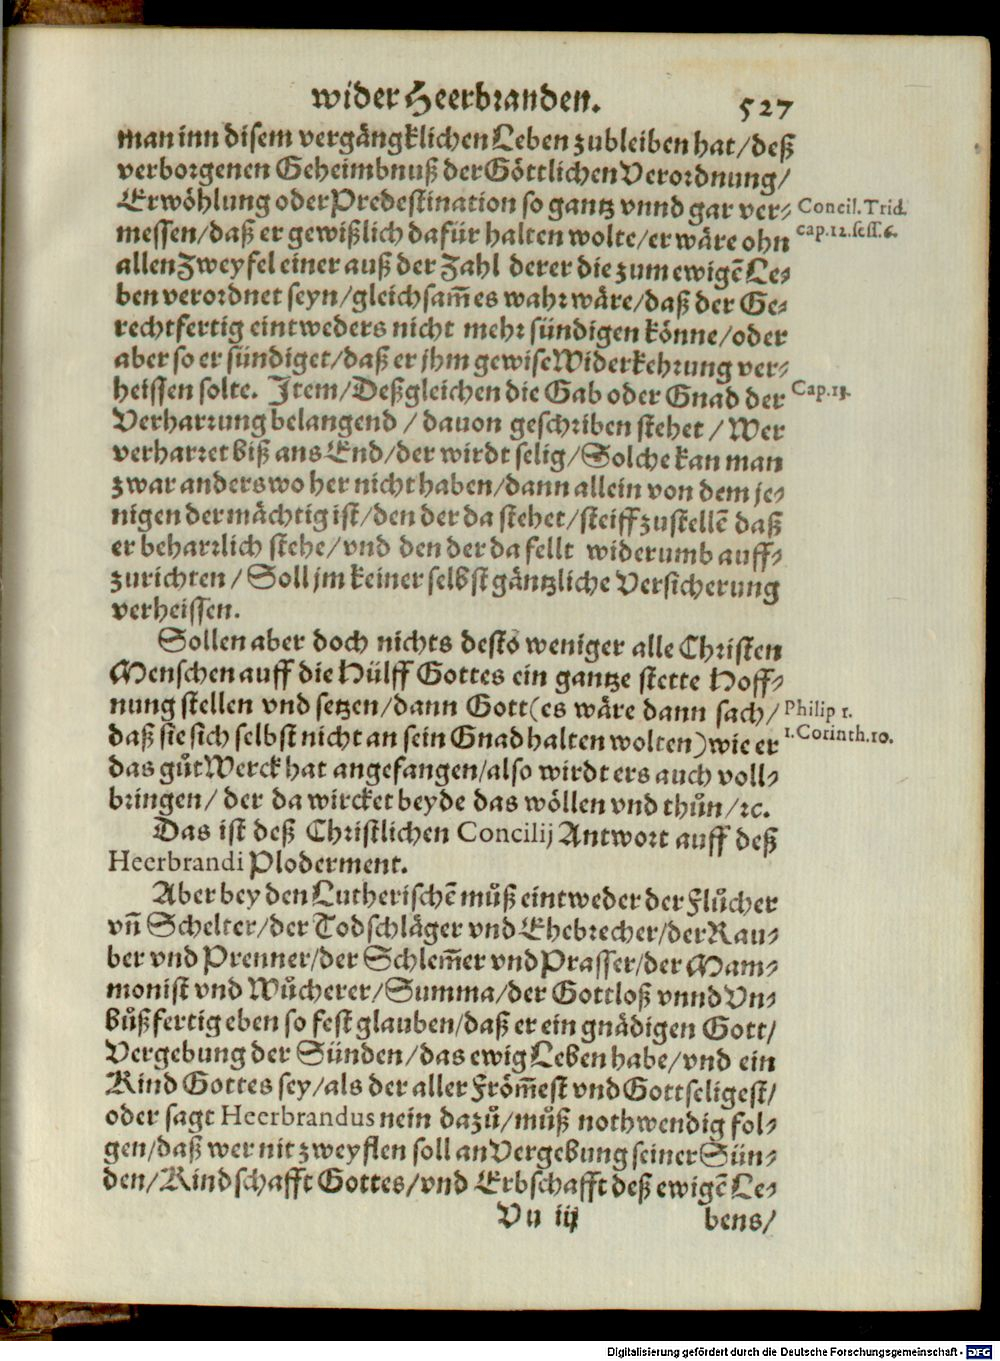 wider Heerbranden. 527
man inn disem vergängklichen Leben zubleiben hat/deß
verborgenen Geheimbnuß der Göttlichen Verordnung/
Erwöhlung oder Predestination so gantz vnnd gar ver-
Concil. Trid.
messen/daß er gewißlich dafür halten wolte/er wäre ohn
cap.12.sess.6.
allen Zweyfel einer auß der Zahl derer die zum ewigẽ Le-
ben verordnet seyn/gleichsam̃ es wahr wäre/daß der Ge-
rechtfertig eintweders nicht mehr sündigen könne/oder
aber so er sündiget/daß er jhm gewise Widerkehrung ver-
heissen solte. Jtem/Deßgleichen die Gab oder Gnad der
Cap.13.
Verharrung belangend / dauon geschriben stehet / Wer
verharret biß ans End/der wirdt selig/Solche kan man
zwar anderswo her nicht haben/dann allein von dem je-
nigen der mächtig ist/den der da stehet/steiff zustellẽ daß
er beharrlich stehe/vnd den der da fellt widerumb auff-
zurichten / Soll jm keiner selbst gäntzliche Versicherung
verheissen.
Sollen aber doch nichts desto weniger alle Christen
Menschen auff die Hülff Gottes ein gantze stette Hoff-
nung stellen vnd setzen/dann Gott (es wäre dann sach/
Philip 1.
daß sie sich selbst nicht an sein Gnad halten wolten) wie er
1.Corinth.10.
das gůt Werck hat angefangen/also wirdt ers auch voll-
bringen/ der da wircket beyde das wöllen vnd thůn/ꝛc.
Das ist deß Christlichen Concilij Antwort auff deß
Heerbrandi Ploderment.
Aber bey den Lutherischẽ můß eintweder der Flůcher
vñ Schelter/der Todschläger vnd Ehebrecher/der Rau-
ber vnd Prenner/der Schlem̃er vnd Prasser/der Mam-
monist vnd Wůcherer/Summa/der Gottloß vnnd Vn-
bůßfertig eben so fest glauben/daß er ein gnädigen Gott/
Vergebung der Sünden/das ewig Leben habe/vnd ein
Kind Gottes sey/als der aller Fröm̃est vnd Gottseligest/
oder sagt Heerbrandus nein dazů/můß nothwendig fol-
gen/daß wer nit zweyflen soll an Vergebung seiner Sün-
den/Kindschafft Gottes/vnd Erbschafft deß ewigẽ Le-
Vu iij bens/
Digitalisierung gefördert durch die Deutsche Forschungsgemeinschaft - DFG